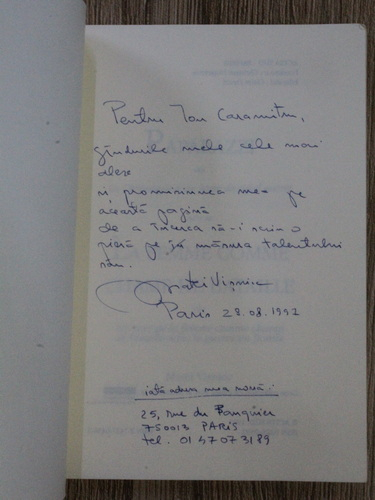 Pentru Ion Caramitru,
gândurile mele cele mai
alese
și promisiunea mea pe
această pagină
de a încerca să-i scriu o
piesă pe măsura talentului
său.
Matei Vișniec
Paris 28.08.1997
iată adresa mea nouă:
25, rue du Banquier
750013 PARIS
tel. 01 47 07 31 89